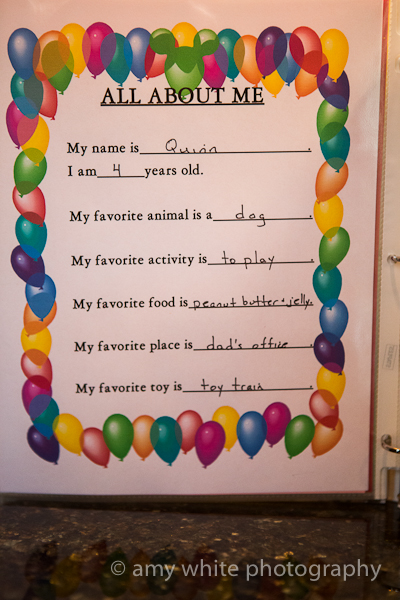 ALL ABOUT ME
My name is Quinn.
I am 4 years old.
My favorite animal is a dog.
My favorite activity is to play.
My favorite food is peanut butter + jelly.
My favorite place is dad's office.
My favorite toy is toy train.
© amy white photography